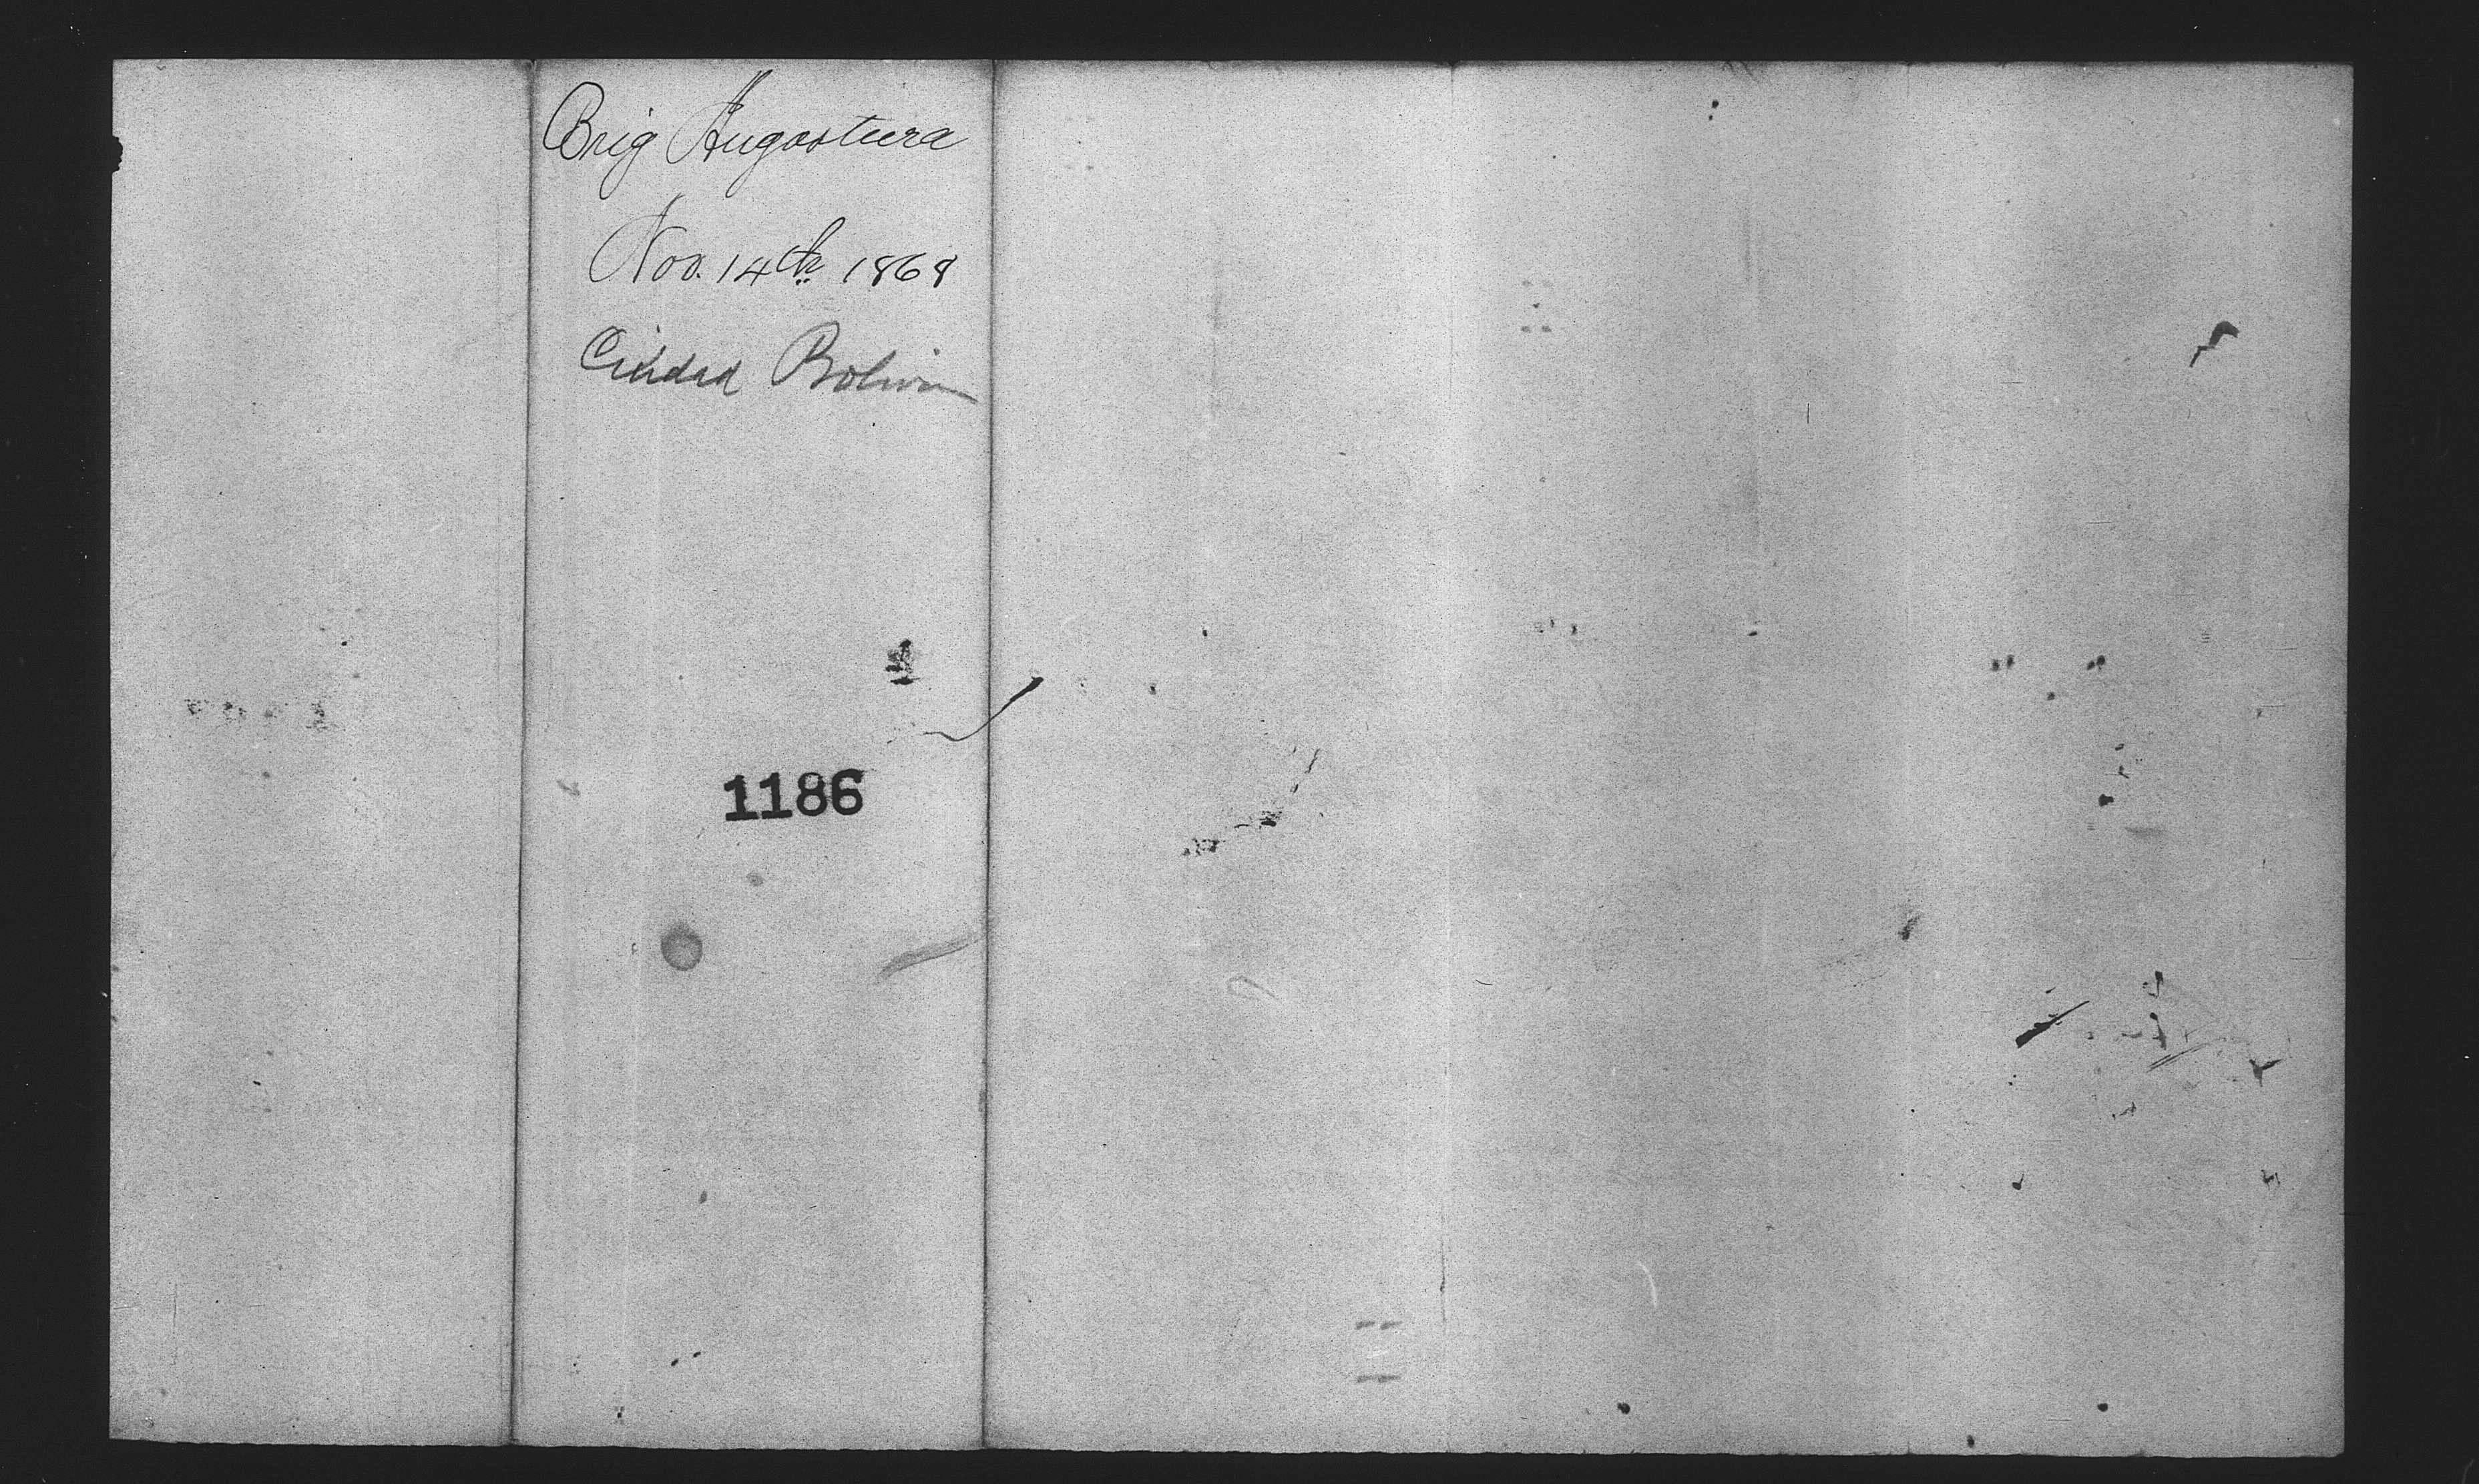 Brig Angostura
Nov. 14th 1868
Ciudad Bolivar
1186